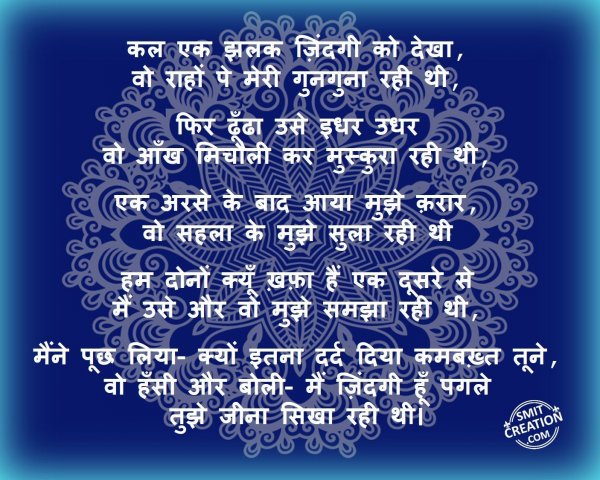 कल एक झलक ज़िंदगी को देखा,
वो राहों पे मेरी गुनगुना रही थी,
फिर ढूँढा उसे इधर उधर
वो आँख मिचौली कर मुस्कुरा रही थी,
एक अरसे के बाद आया मुझे क़रार,
वो सहला के मुझे सुला रही थी
हम दोनों क्यूँ ख़फ़ा हैं एक दूसरे से
मैं उसे और वो मुझे समझा रही थी,
मैंने पूछ लिया- क्यों इतना दर्द दिया कमबख़्त तूने,
वो हँसी और बोली- मैं ज़िंदगी हूँ पगले
तुझे जीना सिखा रही थी।
SMIT
CREATION
.COM